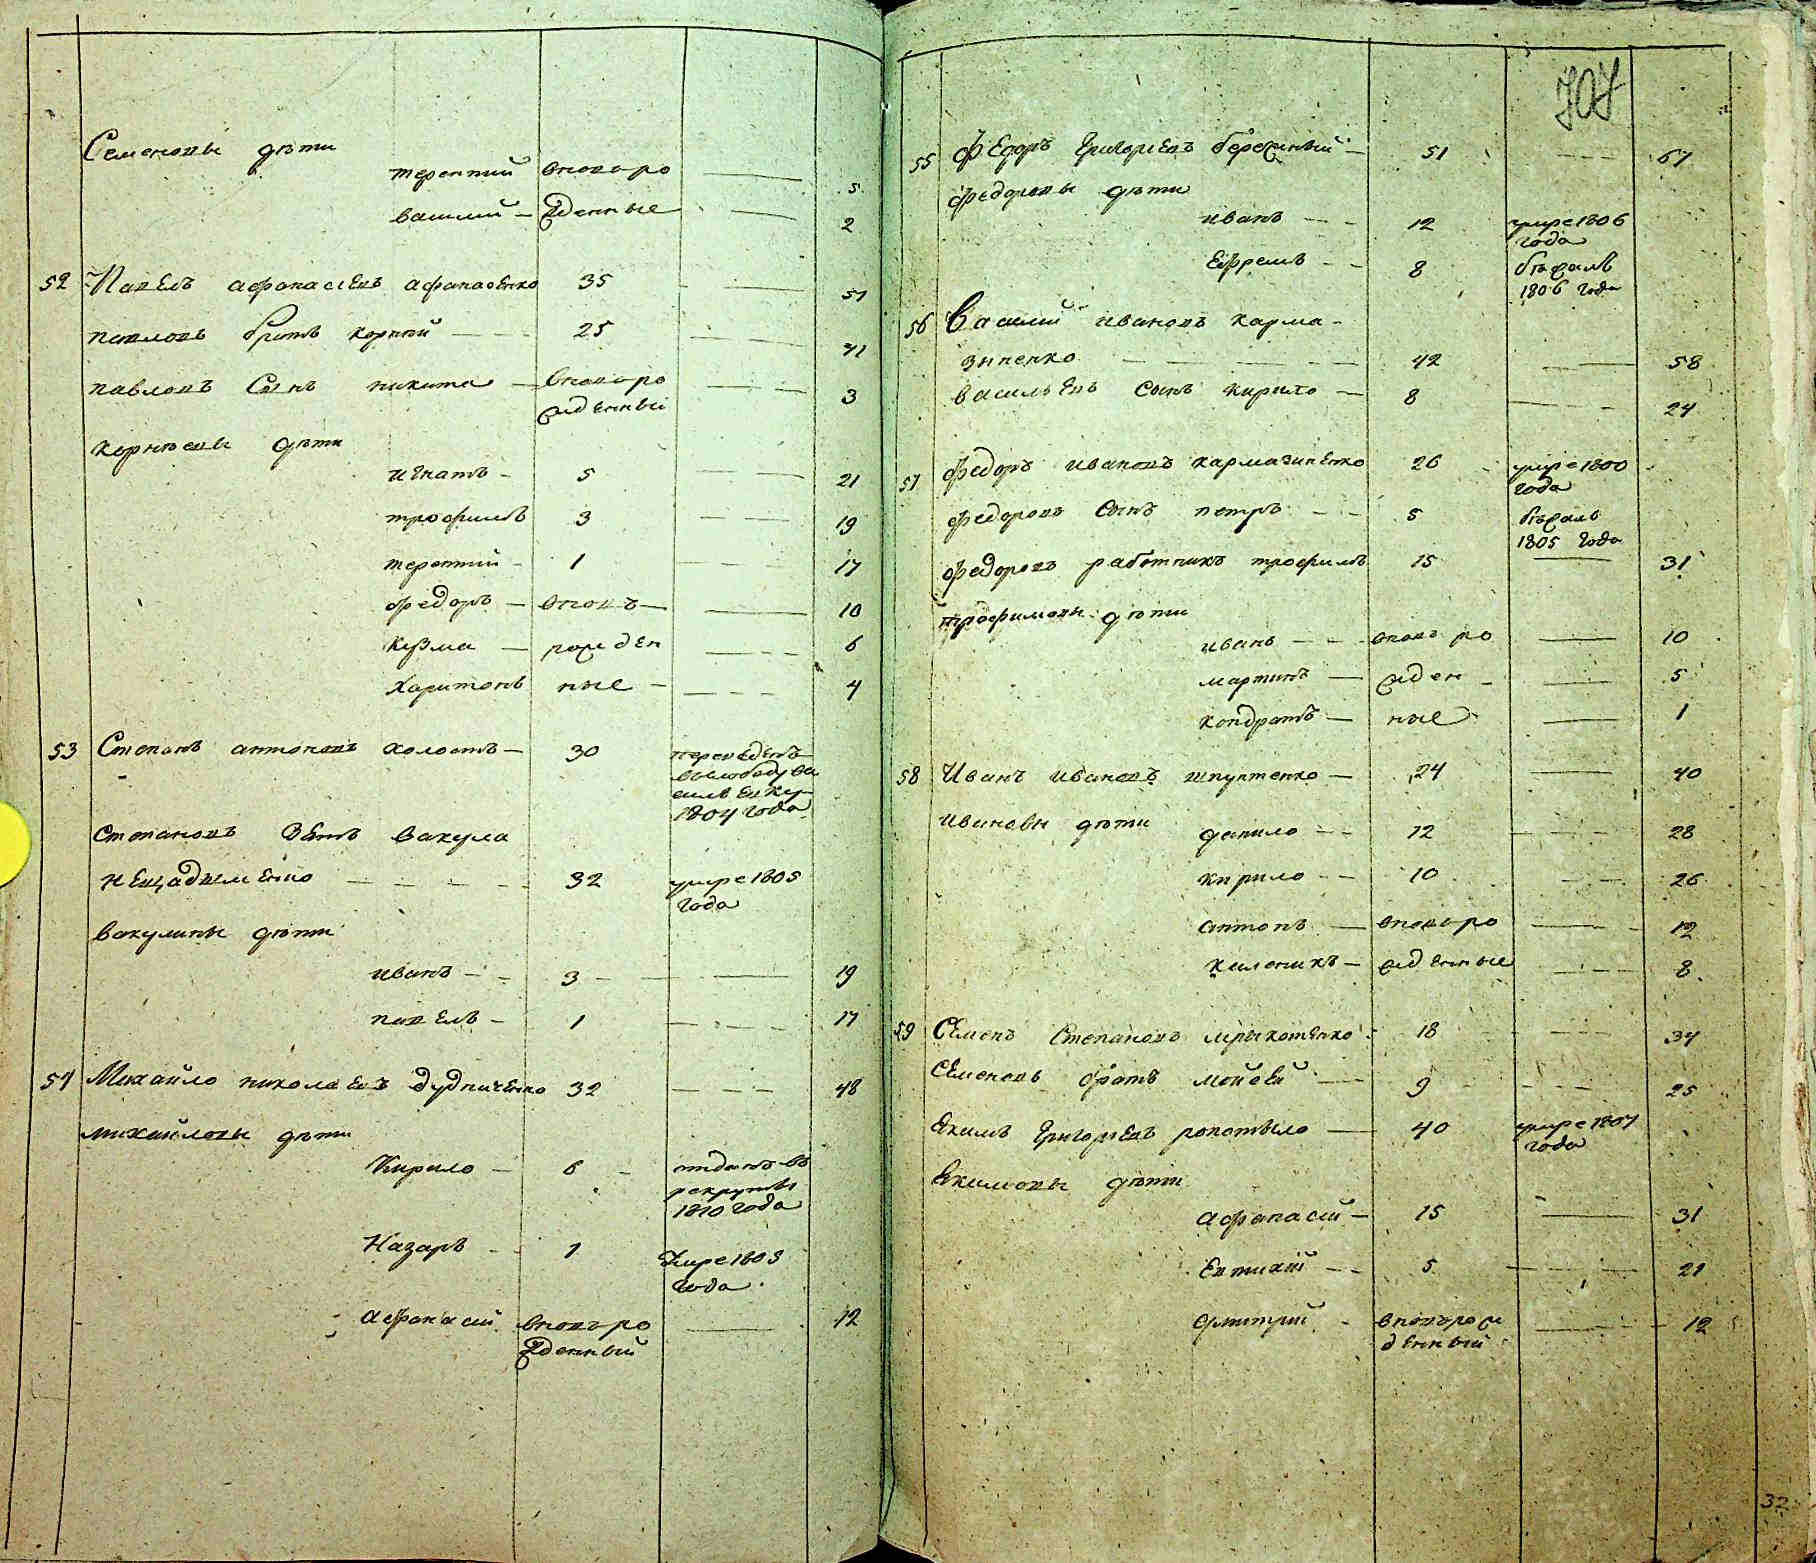 Семеновы дѣти
терентий вновь ро 5
василий жденные 2
52 Павелъ афанасьевъ афанасенко 35 51
павловъ братъ корний 25 41
павловъ сынъ никита вновь ро 3
жденный
корнѣевы дѣти
игнатъ 5 21
трофимъ 3 19
терентий 1 17
федоръ вновь 10
кузма рожден 6
харитонъ ные 4
53 Степанъ антоновъ холостъ 30 переведенъ
1804 года
степановъ зять вакула
32 умре 1805
года
вакулины дѣти
иванъ 3 19
павелъ 1 17
54 Михайло николаевъ дудниченко 32 48
михайловы дѣти
Кирило 6 отданъ въ
рекруты
1810 года
Назаръ 1 умре 1803
года
афанасий вновь ро 12
жденный
707
55 Федоръ григорьевъ бережный 51 67
федоровы дѣти
иванъ 12 умре 1806
года
Ефремъ 8 бѣжалъ
1806 года
56 Василий ивановъ карма-
зиненко 42 58
васильевъ сынъ кирило 8 24
57 Федоръ ивановъ кармазиненко 26 умре 1800
года
федоровъ сынъ петръ 5 бѣжалъ
1805 года
федоровъ работникъ трофимъ 15 31
трофимовы дѣти
иванъ вновь ро 10
мартинъ жден 5
кондратъ ные 1
58 Иванъ ивановъ шпунтенко 24 40
ивановы дѣти данило 12 28
кирило 10 26
антонъ вновь ро 12
каленикъ жденные 8
59 Семенъ степановъ мрыхотенко 18 34
семеновъ братъ мойсей 9 25
Екимъ григорьевъ ропотыло 40 умре 1807
года
Екимовы дѣти
афанасий 15 31
Евтихий 5 21
дмитрий вновь рож 12
денный
32